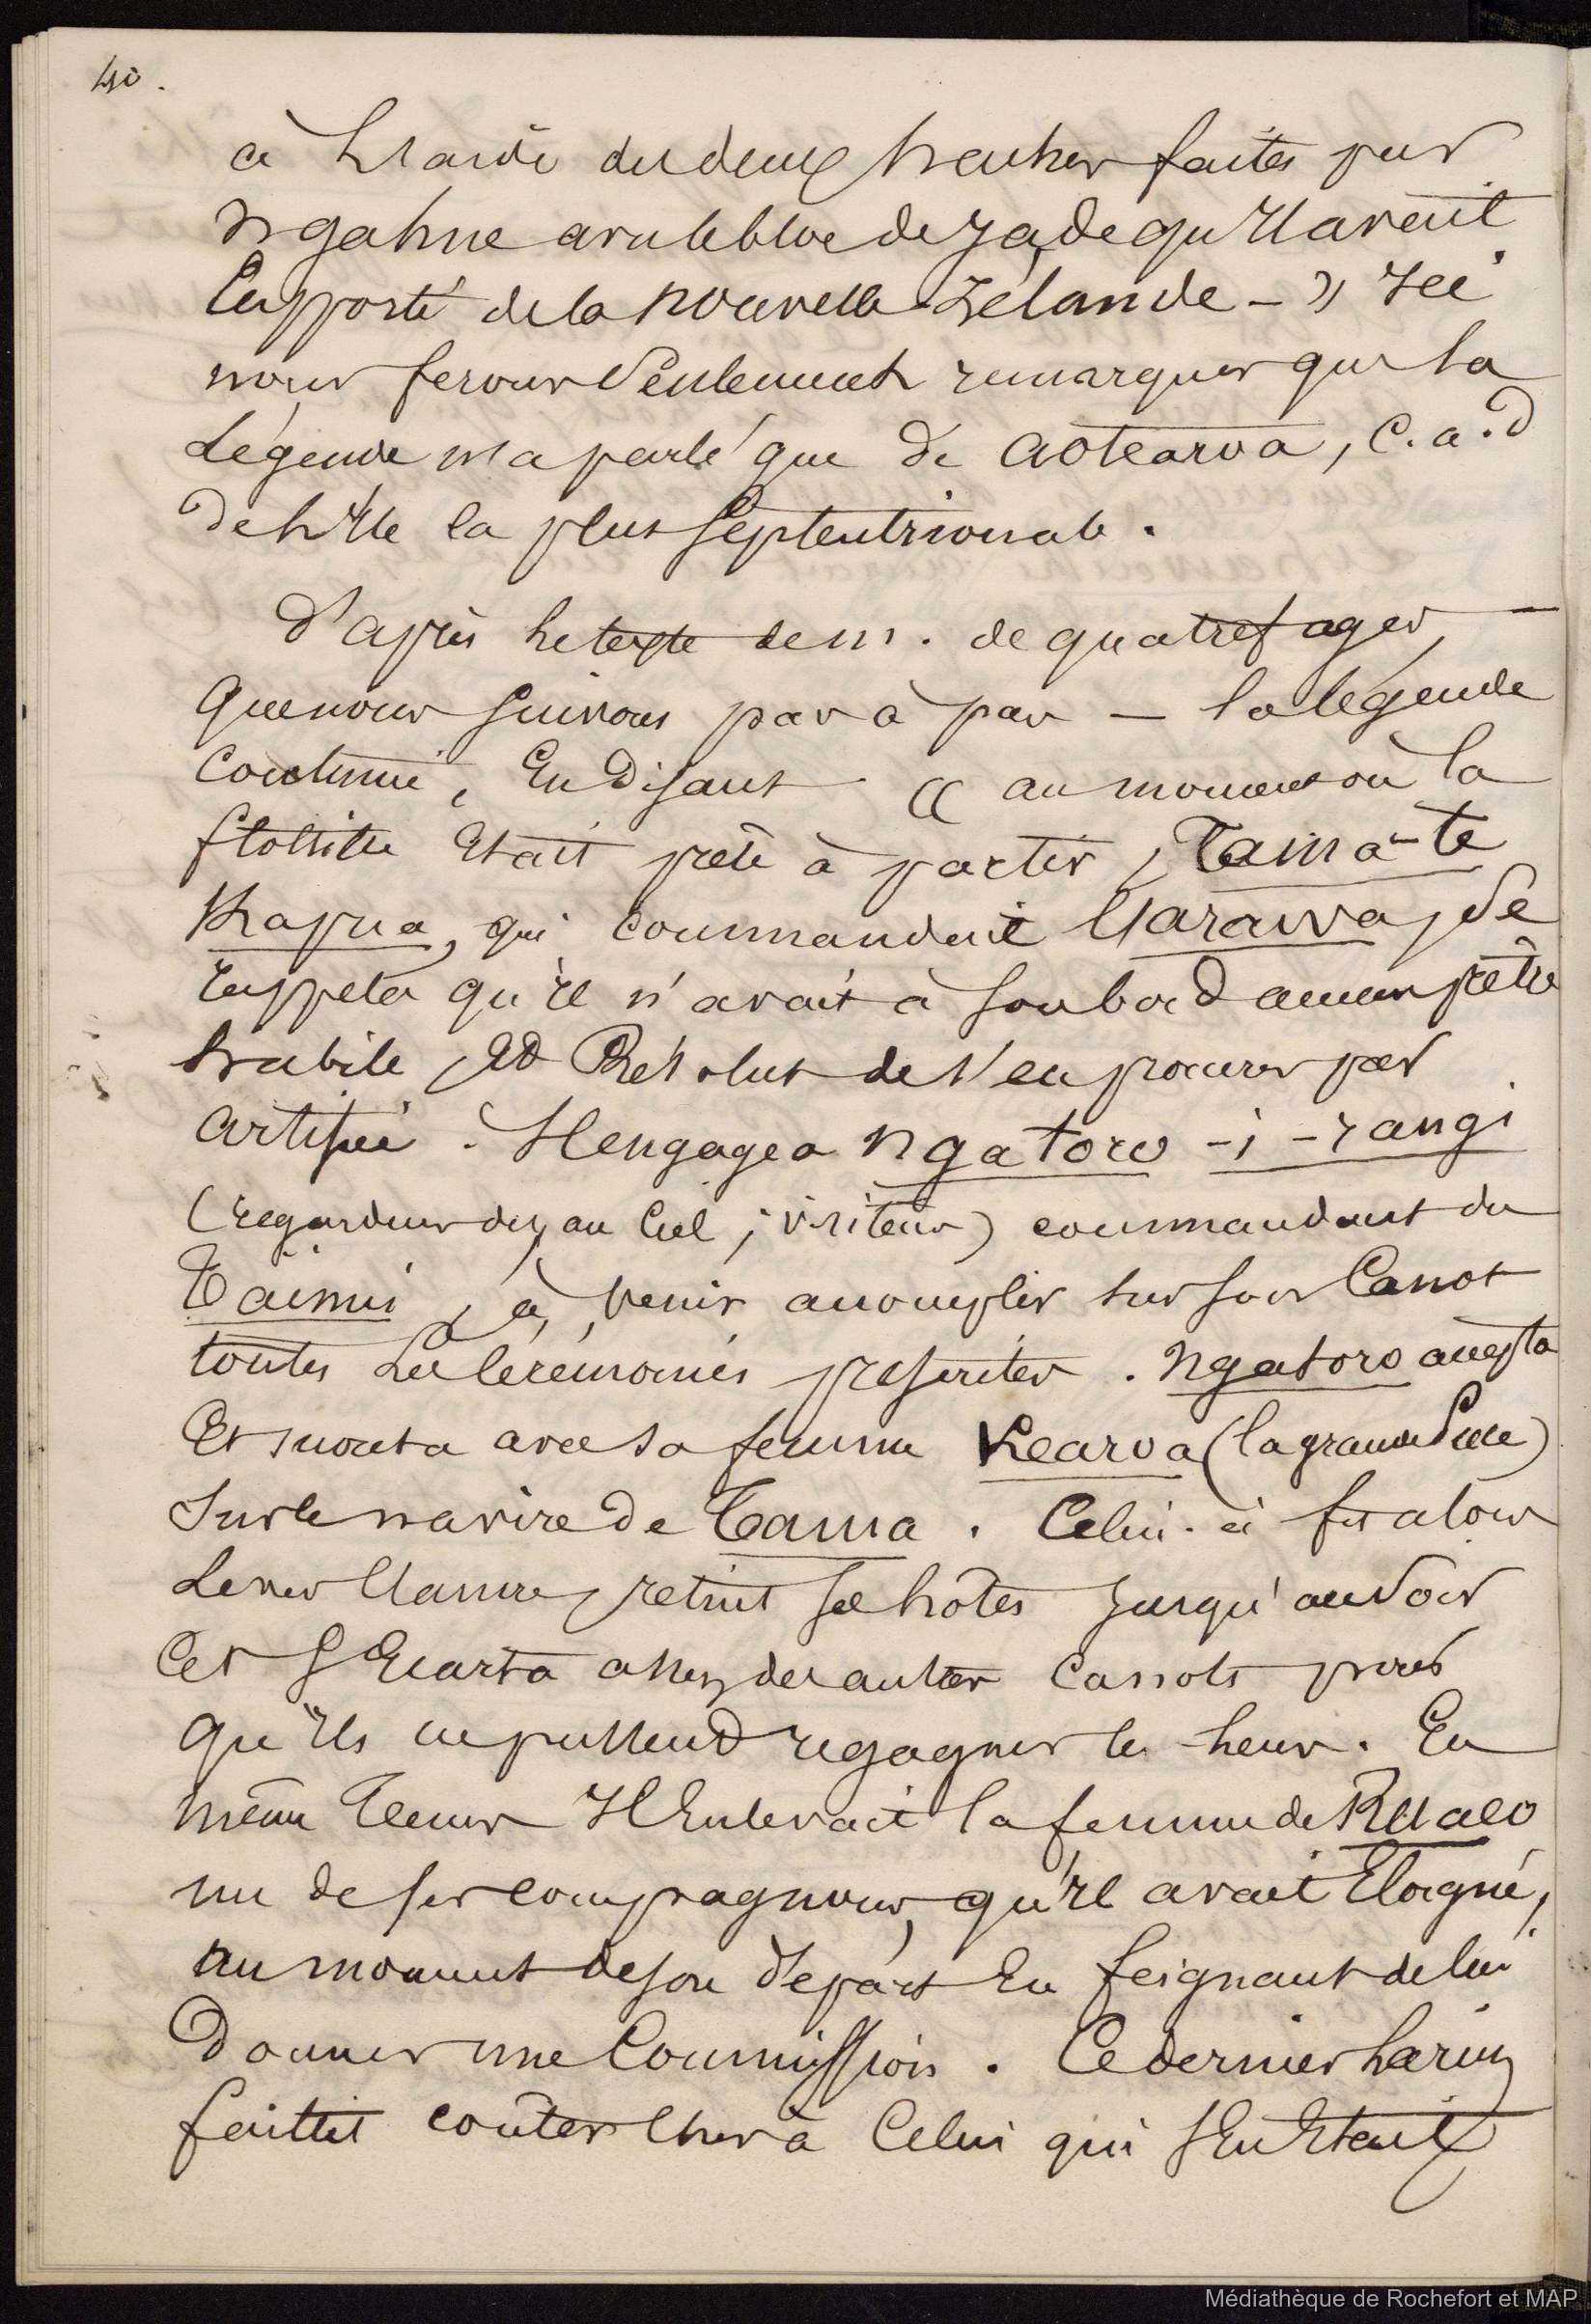 40.
à l'aide des deux haches faites par
Ngahue avec le bloc de jade qu'il avait
rapporté de la Nouvelle-Zélande – » Ici
nous ferons seulement remarquer que la
légende n'a parlé que de Aotearoa, c. a. d
de l'île la plus septentrionale.
D'après le texte de M. de Quatrefages,
que nous suivons pas à pas — la légende
continue, en disant « au moment où la
flottille était prête à partir, Tama-te
Kapua, qui commandait l'Arawa, se
rappela qu'il n'avait à son bord aucun prêtre
habile, et résolut de s'en procurer par
artifice. Il engagea Ngatoro-i-rangi
(regardeur au ciel; visiteur) commandant du
Tainui, à venir accomplir sur son canot
toutes les cérémonies prescrites. Ngatoro accepta
et monta avec sa femme Kearoa (la grande
sur le navire de Tama. Celui-ci fit alors
lever l'ancre, retint ses hôtes jusqu'au soir
et s'écarta assez des autres canots pour
qu'ils ne pussent regagner le leur. En
même temps il enlevait la femme de Ruaeo
un de ses compagnons, qu'il avait éloigné,
au moment de son départ en feignant de lui
donner une commission. Ce dernier larcin
faillit coûter cher à celui qui s'en était
Médiathèque de Rochefort et MAP